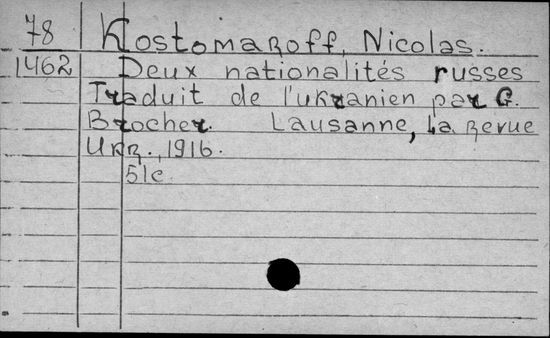 78 Kostomaroff, Nicolas.
1462 Deux nationalités russes
Traduit de l'ukranien par G.
Brocher. Lausanne, La Revue
Ukr., 1916.
51c.